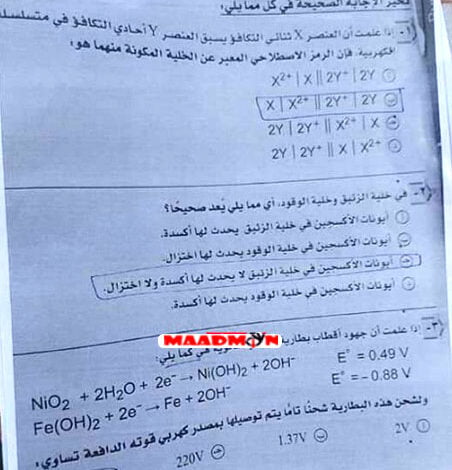 تخير الإجابة الصحيحة في كل مما يلي:
١- إذا علمت أن العنصر X ثنائي التكافؤ يسبق العنصر Y أحادي التكافؤ في متسلسلة
الكهربية، فإن الرمز الاصطلاحي المعبر عن الخلية المكونة منهما هو:
أ X²⁺ | X || 2Y⁺ | 2Y
ب X | X²⁺ || 2Y⁺ | 2Y
ج 2Y | 2Y⁺ || X²⁺ | X
د 2Y | 2Y⁺ || X | X²⁺
٢- في خلية الزئبق وخلية الوقود، أي مما يلي يُعد صحيحًا؟
أ أيونات الأكسجين في خلية الزئبق يحدث لها أكسدة.
ب أيونات الأكسجين في خلية الوقود يحدث لها اختزال.
ج أيونات الأكسجين في خلية الزئبق لا يحدث لها أكسدة ولا اختزال.
د أيونات الأكسجين في خلية الوقود يحدث لها أكسدة.
٣- إذا علمت أن جهود أقطاب بطارية هي كما يلي:
MAADMOYN
NiO₂ + 2H₂O + 2e⁻ → Ni(OH)₂ + 2OH⁻ E° = 0.49 V
Fe(OH)₂ + 2e⁻ → Fe + 2OH⁻ E° = - 0.88 V
ولشحن هذه البطارية شحنًا تامًا يتم توصيلها بمصدر كهربي قوته الدافعة تساوي:
أ 2V ب 1.37V ج 220V